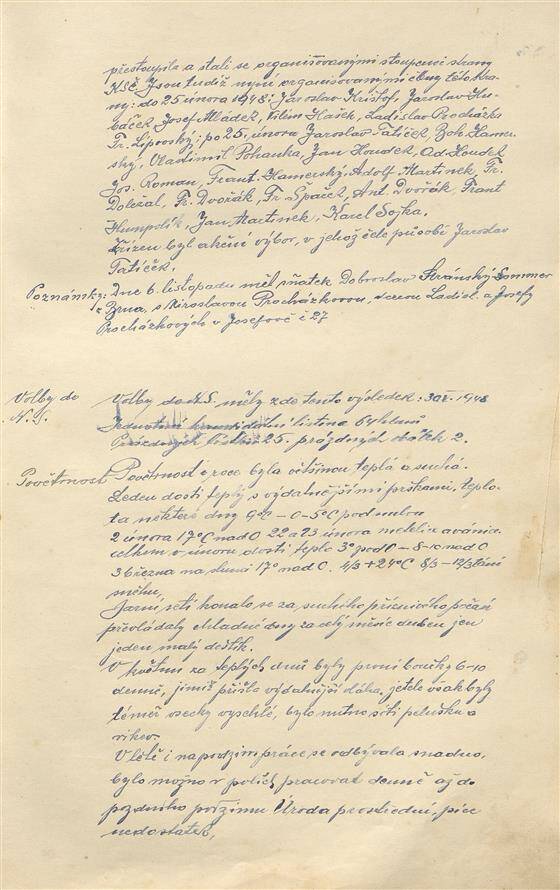 přestoupila a stali se organisovanými stoupenci strany
KSČ. Jsou tudíž nyní organisovanými členy této stra-
ny: do 25 února 1948: Jaroslav Krištof, Jaroslav Hu-
báček, Josef Mládek, Vilém Hašek, Ladislav Procházka
Fr. Lipovský; po 25. února Jaroslav Tatíček, Boh. Hamer-
ský, Vladimil Pohanka, Jan Houdek, Ad. Houdek
Jos. Roman, Frant. Hamerský, Adolf Martinek, Fr.
Doležal, Fr. Dvořák, Fr. Špaček, Ant. Dvořák Frant
Humpolík, Jan Martinek, Karel Sojka.
Zřízen byl akční výbor, v jehož čele působí Jaroslav
Tatíček.
Poznámky: Dne 6. listopadu měl sňatek Dobroslav Stránský Sommer
z Brna, s Miroslavou Procházkovou, dcerou Ladisl. a Josefy
Procházkových v Josefově č 27
Volby do N. S. Volby do N.S. měly zde tento výsledek: 30/V. 1948
Jednotná kandidátní listina 64 hlasů
Prázdných lístků 25. prázdných obálek 2.
Povětrnost Povětrnost v roce byla většinou teplá a suchá.
Leden dosti teplý s vydatnějšími prškami, teplo-
ta některé dny 9°C – 0–5°C pod nulou
2 února 17°C nad 0 22 a 23 února metelice a vánice
celkem v únoru dosti teplo 3° pod 0 – 8–10 nad 0
3 března na slunci 17° nad 0. 4/3 + 24°C 8/3 – 12/3 tání
sněhu,
Jarní setí konalo se za suchého příznivého počasí
převládaly chladné dny za celý měsíc duben jen
jeden malý deštík.
V květnu za teplých dnů byly první bouřky 6–10
denně, jimiž přišla vydatnější vláha, jetele však byly
téměř všecky vyschlé, bylo nutno síti pelušku a
vikev.
V létě i na podzim práce se odbývala snadno,
bylo možno v polích pracovat denně až do
pozdního podzimu Úroda prostřední, píce
nedostatek,